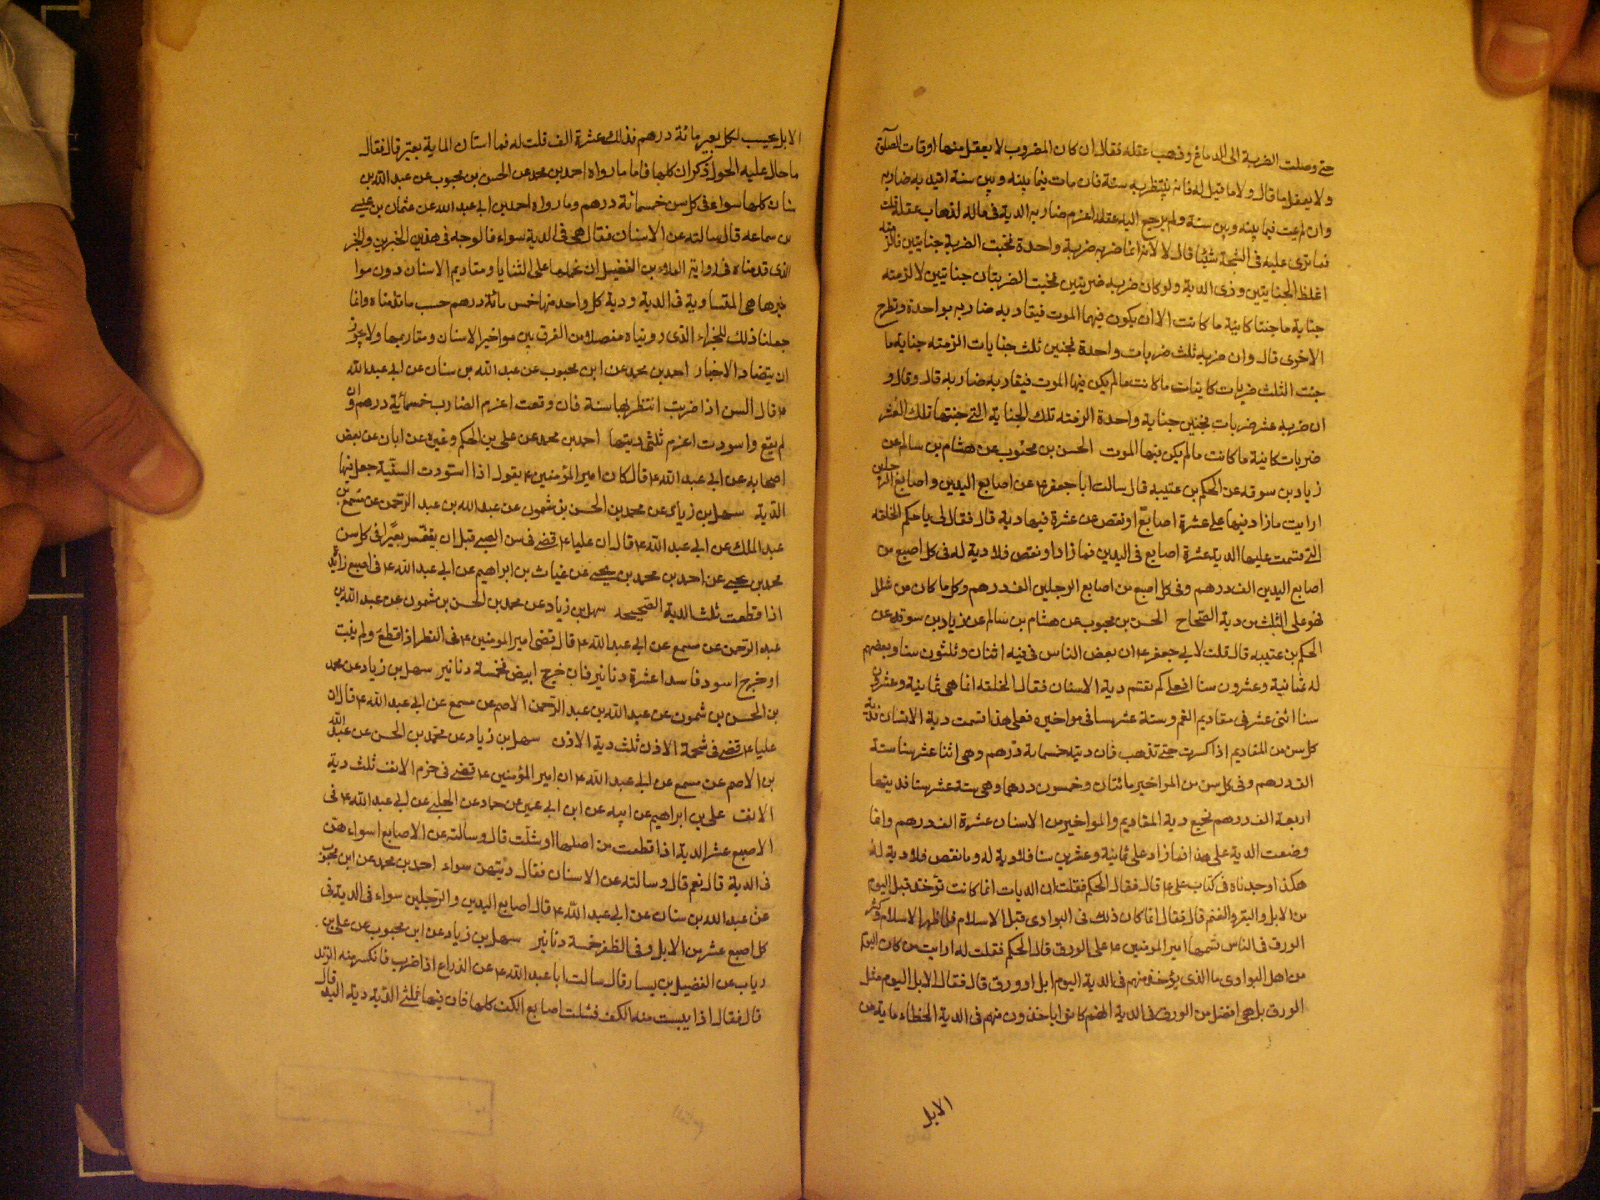 حتى وصلت الضربة الى الدماغ وذهب عقله فقال ان كان المضروب لا يعقل منها اوقات الصلوة
ولا يعقل ما قال ولا ما قيل له فانه ينتظر به سنة فان مات فيما بينه وبين سنة اقيد به ضاربه
وان لم يمت فيما بينه وبين سنة ولم يرجع اليه عقله اغرم ضاربه الدية في ماله لذهاب عقله قلت
فما ترى عليه في الشجة شيئا قال لا لانه انما ضربه ضربة واحدة فجنت الضربة جنايتين فالزمته
اغلظ الجنايتين وهي الدية ولو كان ضربه ضربتين فجنت الضربتان جنايتين لالزمته
جناية ما جنتا كائنة ما كانت الا ان يكون فيهما الموت فيقاد به ضاربه بواحدة ويطرح
الاخرى قال وان ضربه ثلث ضربات واحدة فجنين ثلث جنايات الزمته جناية ما
جنت الثلث ضربات كاينات ما كانت ما لم يكن فيها الموت فيقاد به ضاربه قال وقال و
ان ضربه عشر ضربات فجنين جناية واحدة الزمته تلك الجناية التي جنتها تلك العشر
ضربات كائنة ما كانت ما لم يكن فيها الموت الحسن بن محبوب عن هشام بن سالم عن
زياد بن سوقه عن الحكم بن عتيبه قال سالت ابا جعفر ع عن اصابع اليدين واصابع الرجلين
ارايت ما زاد فيها على عشرة اصابع او نقص عن عشرة فيها دية قال فقال لي يا حكم الخلقه
التي قسمت عليها الدية عشرة اصابع في اليدين فما زاد او نقص فلا دية له في كل اصبع من
اصابع اليدين الف درهم وفي كل اصبع من اصابع الرجلين الف درهم وكل ما كان من شلل
فهو على الثلث من دية الصحاح الحسن بن محبوب عن هشام بن سالم عن زياد بن سوقه عن
الحكم بن عتيبه قال قلت لابي جعفر ع ان بعض الناس في فيه اثنان وثلثون سنا وبعضهم
له ثمانية وعشرون سنا فعلى كم تقسم دية الاسنان فقال الخلقه انما هي ثمانية وعشرون
سنا اثنى عشر في مقاديم الفم وستة عشر سنا في مواخيره فعلى هذا قسمت دية الاسنان فدية
كل سن من المقاديم اذا كسرت حتى تذهب فان ديته خمسمائة درهم وهي اثنا عشر سنا ستة
الف درهم وفي كل سن من المواخير مائتان وخمسون درهما وهي ستة عشر سنا فديتها
اربعة الف درهم فجميع دية المقاديم والمواخير من الاسنان عشرة الف درهم وانما
وضعت الدية على هذا فما زاد على ثمانية وعشرين سنا فلا دية له وما نقص فلا دية له
هكذا وجدناه في كتاب على ع قال فقال الحكم فقلت ان الديات انما كانت تؤخذ قبل اليوم
من الابل والبقر والغنم قال فقال انما كان ذلك في البوادى قبل الاسلام فلما ظهر الاسلام وكثر
الورق في الناس قسمها امير المومنين ع على الورق قال الحكم فقلت له ارايت من كان اليوم
من اهل البوادى ما الذى يؤخذ منهم في الدية اليوم ابل او ورق قال فقال الابل اليوم مثل
الورق بل هي افضل من الورق في الدية انهم كانوا ياخذون منهم في الدية الخطاء ماية من
الابل
الابل يحسب لكل بعير مائة درهم فذلك عشرة الف قلت له فما اسنان الماية بعير قال فقال
ما حال عليه الحول ذكران كلها فاما ما رواه احمد بن محمد عن الحسن بن محبوب عن عبد الله بن
سنان كلها سواء في كل سن خمسمائة درهم وما رواه احمد بن ابي عبد الله عن عثمان بن عيسى
عن سماعه قال سالته عن الاسنان فقال هي في الدية سواء فالوجه في هذين الخبرين والخبر
الذى قدمناه في رواية العلاء بن الفضيل ان نحملها على الثنايا ومقاديم الاسنان دون موا
خيرها هي المتساوية في الدية ودية كل واحد منها خمس مائة درهم حسب ما قدمناه وانما
جعلنا ذلك للخبر الذى رويناه مفصلا من الفرق بين مواخير الاسنان ومقاديمها ولا يجوز
ان يتضاد الاخبار احمد بن محمد عن ابن محبوب عن عبد الله بن سنان عن ابي عبد الله
ع قال السن اذا ضربت انتظر بها سنة فان وقعت اغرم الضارب خمسمائة درهم وان
لم يقع واسودت اغرم ثلثي ديتها احمد بن محمد عن على بن الحكم وغيره عن ابان عن بعض
اصحابه عن ابي عبد الله ع قال كان امير المؤمنين ع يقول اذا اسودت السنية جعل فيها
الدية سهل بن زياد عن محمد بن الحسن بن شمون عن عبد الله بن عبد الرحمن عن مسمع بن
عبد الملك عن ابي عبد الله ع قال ان عليا ع قضى في سن الصبي قبل ان يثغر بعيرا في كل سن
محمد بن يحيى عن احمد بن محمد بن يحيى عن غياث بن ابراهيم عن ابي عبد الله ع في اصبع زائدة
اذا قطعت ثلث الدية الصحيحه سهل بن زياد عن محمد بن الحسن بن شمون عن عبد الله بن
عبد الرحمن عن مسمع عن ابي عبد الله ع قال قضى امير المومنين ع في الظفر اذا قطع ولم ينبت
او خرج اسود فاسدا عشرة دنانير فان خرج ابيض فخمسة دنانير سهل بن زياد عن محمد
بن الحسن بن شمون عن عبد الله بن عبد الرحمن الاصم عن مسمع عن ابي عبد الله ع قال ان
عليا ع قضى في شحمة الاذن ثلث دية الاذن سهل بن زياد عن محمد بن الحسن عن عبد الله
بن الاصم عن مسمع عن ابي عبد الله ع ان امير المؤمنين ع قضى في خرم الانف ثلث دية
الانف على بن ابراهيم عن ابيه عن ابن ابي عمير عن حماد عن الحلبي عن ابي عبد الله ع في
الاصبع عشر الدية اذا قطعت من اصلها او شلت قال وسالته عن الاصابع اسواء هن
في الدية قال نعم قال وسالته عن الاسنان فقال ديتهن سواء احمد بن محمد عن ابن محبوب
عن عبد الله بن سنان عن ابي عبد الله ع قال اصابع اليدين والرجلين سواء في الدية في
كل اصبع عشر من الابل وفي الظفر خمسة دنانير سهل بن زياد عن ابن محبوب عن على بن
رياب عن الفضيل بن يسار قال سالت ابا عبد الله ع عن الذراع اذا ضرب فانكسر منه الزند
قال فقال اذا يبست منه الكف فشلت اصابع الكف كلها فان فيها ثلثي الدية دية اليد قال